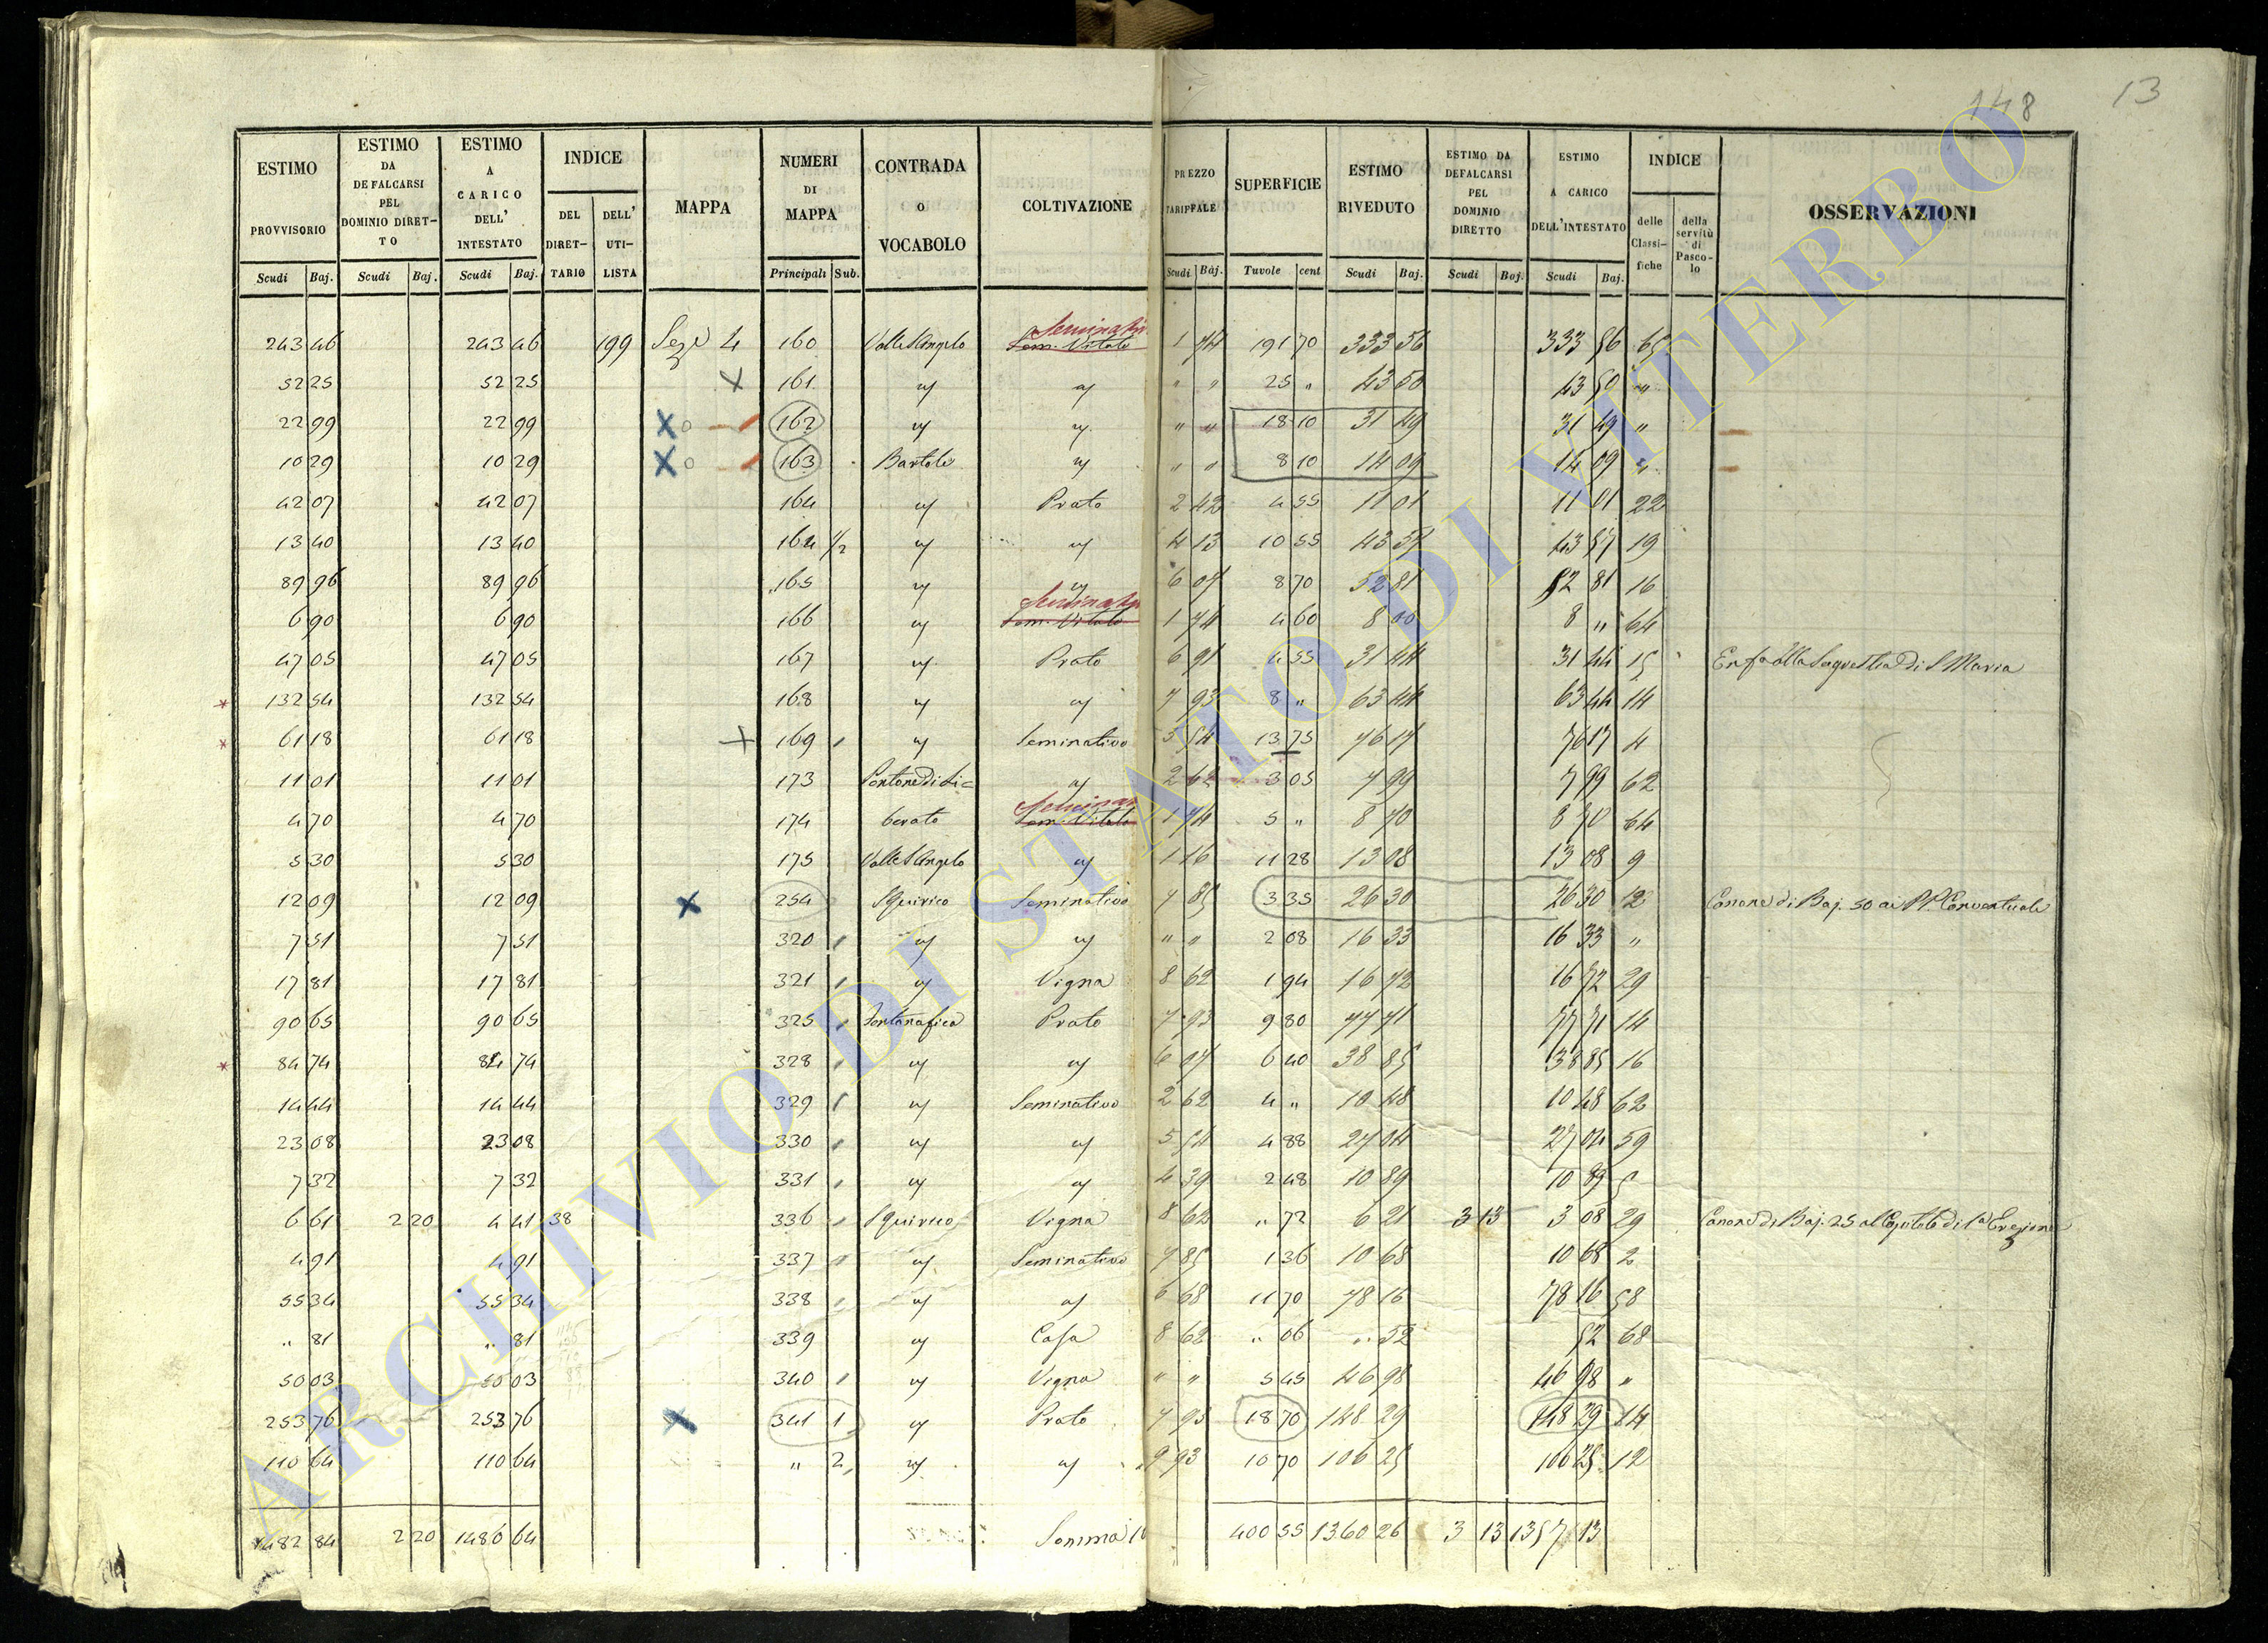 148 13
ESTIMO PROVVISORIO | ESTIMO DA DEFALCARSI PEL DOMINIO DIRET-TO | ESTIMO A CARICO DELL' INTESTATO | INDICE DEL DIRET-TARIO | DELL' UTI-LISTA | MAPPA | NUMERI DI MAPPA | CONTRADA O VOCABOLO | COLTIVAZIONE | PREZZO TARIFFALE | SUPERFICIE | ESTIMO RIVEDUTO | ESTIMO DA DEFALCARSI PEL DOMINIO DIRETTO | ESTIMO A CARICO DELL'INTESTATO | INDICE delle Classi-fiche | della servitù di Pasco-lo | OSSERVAZIONI
Scudi Baj. | Scudi Baj. | Scudi Baj. | Principali Sub. | Scudi Baj. | Tavole cent | Scudi Baj. | Scudi Baj. | Scudi Baj.
243 46 | 243 46 | 199 | Sez.e 4 | 160 | Valle S Angelo | Sem. Vitato Seminativo | 1 74 | 191 70 | 333 56 | 333 56 | 65
52 25 | 52 25 | 161 | " | " | " " | 25 " | 43 50 | 43 50 | "
22 99 | 22 99 | 162 | " | " | " " | 18 10 | 31 49 | 31 49 | "
10 29 | 10 29 | 163 | Bartoli | " | " " | 8 10 | 14 09 | 14 09 | "
42 07 | 42 07 | 164 | " | Prato | 2 42 | 4 55 | 11 01 | 11 01 | 22
13 40 | 13 40 | 164 1/2 | " | " | 4 13 | 10 55 | 43 57 | 43 57 | 19
89 96 | 89 96 | 165 | " | " | 6 07 | 8 70 | 52 81 | 52 81 | 16
6 90 | 6 90 | 166 | " | Sem. Vitato Seminativo | 1 74 | 4 60 | 8 00 | 8 " | 64
47 05 | 47 05 | 167 | " | Prato | 6 91 | 4 55 | 31 44 | 31 44 | 15 | Enf.a alla Sagrestia di S Maria
132 54 | 132 54 | 168 | " | " | 7 93 | 8 " | 63 44 | 63 44 | 14
61 18 | 61 18 | 169 | " | Seminativo | 5 54 | 13 75 | 76 17 | 76 17 | 4
11 01 | 11 01 | 173 | Pontone di Li= | " | 2 62 | 3 05 | 7 99 | 7 99 | 62
4 70 | 4 70 | 174 | berato | Sem. Vitato Seminativo | 1 74 | 5 " | 8 70 | 8 70 | 64
5 30 | 5 30 | 175 | Valle S Angelo | " | 1 16 | 11 28 | 13 08 | 13 08 | 9
12 09 | 12 09 | 254 | S Quirico | Seminativo | 7 85 | 3 35 | 26 30 | 26 30 | 2 | Canone di Baj. 50 ai PP. Conventuali
7 51 | 7 51 | 320 | " | " | " " | 2 08 | 16 33 | 16 33 | "
17 81 | 17 81 | 321 | " | Vigna | 8 62 | 1 94 | 16 72 | 16 72 | 29
90 65 | 90 65 | 325 | Fontanafico | Prato | 7 93 | 9 80 | 77 71 | 77 71 | 14
84 74 | 84 74 | 328 | " | " | 6 07 | 6 40 | 38 85 | 38 85 | 16
14 44 | 14 44 | 329 | " | Seminativo | 2 62 | 4 " | 10 48 | 10 48 | 62
23 08 | 23 08 | 330 | " | " | 5 54 | 4 88 | 27 04 | 27 04 | 59
7 32 | 7 32 | 331 | " | " | 4 39 | 2 48 | 10 89 | 10 89 | 5
6 61 | 2 20 | 4 41 | 38 | 336 | S Quirico | Vigna | 8 62 | " 72 | 6 21 | 3 13 | 3 08 | 29 | Canone di Baj. 25 al Capitolo di 1a Erezione
4 91 | 4 91 | 337 | " | Seminativo | 7 85 | 1 36 | 10 68 | 10 68 | 2
55 34 | 55 34 | 338 | " | " | 6 68 | 11 70 | 78 16 | 78 16 | 58
" 81 | " 81 | 339 | " | Casa | 8 62 | " 06 | " 52 | 52 | 68
50 03 | 50 03 | 340 | " | Vigna | " " | 5 45 | 46 98 | 46 98 | "
253 76 | 253 76 | 341 1 | " | Prato | 7 93 | 18 70 | 148 29 | 148 29 | 14
110 64 | 110 64 | " 2 | " | " | 9 93 | 10 70 | 106 25 | 106 25 | 12
1482 84 | 2 20 | 1480 64 | Somma | 400 55 | 1360 26 | 3 13 | 1357 13
ARCHIVIO DI STATO DI VITERBO